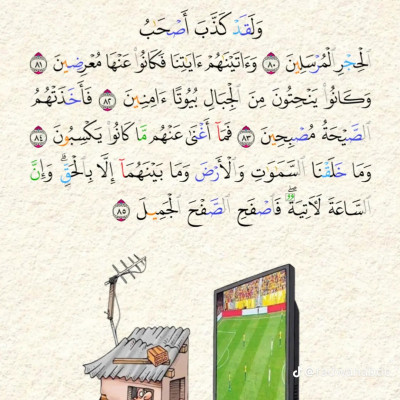 وَلَقَدْ كَذَّبَ أَصْحَٰبُ
ٱلْحِجْرِ ٱلْمُرْسَلِينَ ٨٠ وَءَاتَيْنَٰهُمْ ءَايَٰتِنَا فَكَانُوا۟ عَنْهَا مُعْرِضِينَ ٨١
وَكَانُوا۟ يَنْحِتُونَ مِنَ ٱلْجِبَالِ بُيُوتًا ءَامِنِينَ ٨٢ فَأَخَذَتْهُمُ
ٱلصَّيْحَةُ مُصْبِحِينَ ٨٣ فَمَآ أَغْنَىٰ عَنْهُم مَّا كَانُوا۟ يَكْسِبُونَ ٨٤
وَمَا خَلَقْنَا ٱلسَّمَٰوَٰتِ وَٱلْأَرْضَ وَمَا بَيْنَهُمَآ إِلَّا بِٱلْحَقِّ ۗ وَإِنَّ
ٱلسَّاعَةَ لَءَاتِيَةٌ ۖ فَٱصْفَحِ ٱلصَّفْحَ ٱلْجَمِيلَ ٨٥